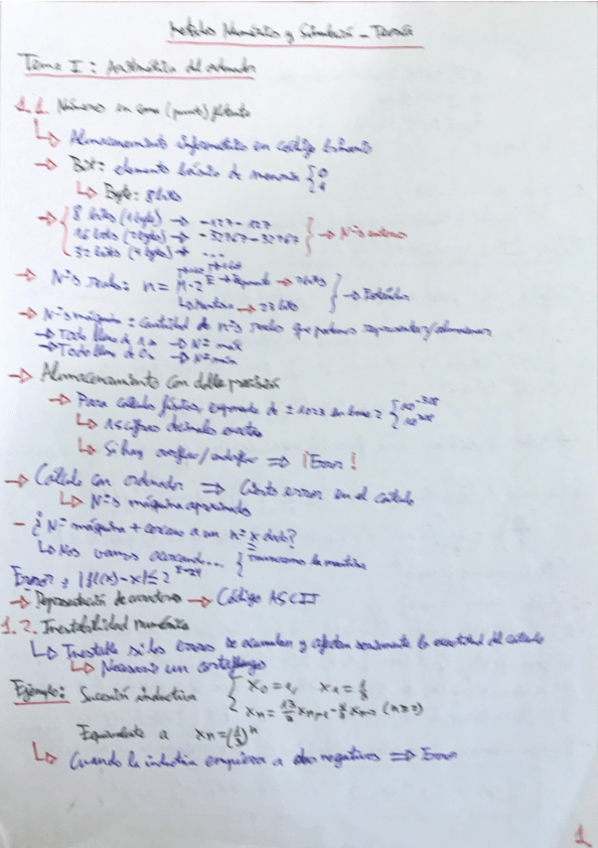 Métodos Numéricos y Simulación - Teoría
Tema I: Aritmética del ordenador
1.1. Números en coma (punto) flotante
↳ Almacenamiento informático en código binario
→ Bit: elemento básico de memoria { 0 1
↳ Byte: 8 bits
→ { 8 bits (1 byte) → -127 - 127
16 bits (2 bytes) → -32767 - 32767 } → Nºs enteros
32 bits (4 bytes) → ...
→ Nºs reales: n = M·2^E → Exponente → 7 bits
↳ Mantisa → 23 bits } → Estándar
→ Nºs máquina = Cantidad de nºs reales que podemos representar/almacenar
→ Todo lleno de 1s → Nº máx
→ Todo lleno de 0s → Nº mín
→ Almacenamiento con doble precisión
→ Para cálculo físico, exponente de ±1023 en base 2 { 10^-308 10^308
↳ 16 cifras decimales exactas
↳ Si hay overflow/underflow ⇒ ¡Error!
→ Cálculo con ordenador ⇒ Cierto error en el cálculo
↳ Nºs máquina aproximados
- ¿Nº máquina + cercano a un nº x dado?
↳ Nos vamos acercando... { Truncamos la mantisa
Error: |fl(x)-x| ≤ 2^E-24
→ Representación de caracteres → Código ASCII
1.2. Inestabilidad numérica
↳ Inestable si los errores se acumulan y afectan seriamente la exactitud del cálculo
↳ Necesario un cortafuegos
Ejemplo: Sucesión inductiva { x0 = 1, x1 = 1/3
xn = 13/3 xn-1 - 4/3 xn-2 (n≥2)
Equivalente a xn = (1/3)^n
↳ Cuando la inductiva empieza a dar negativos ⇒ Error
1